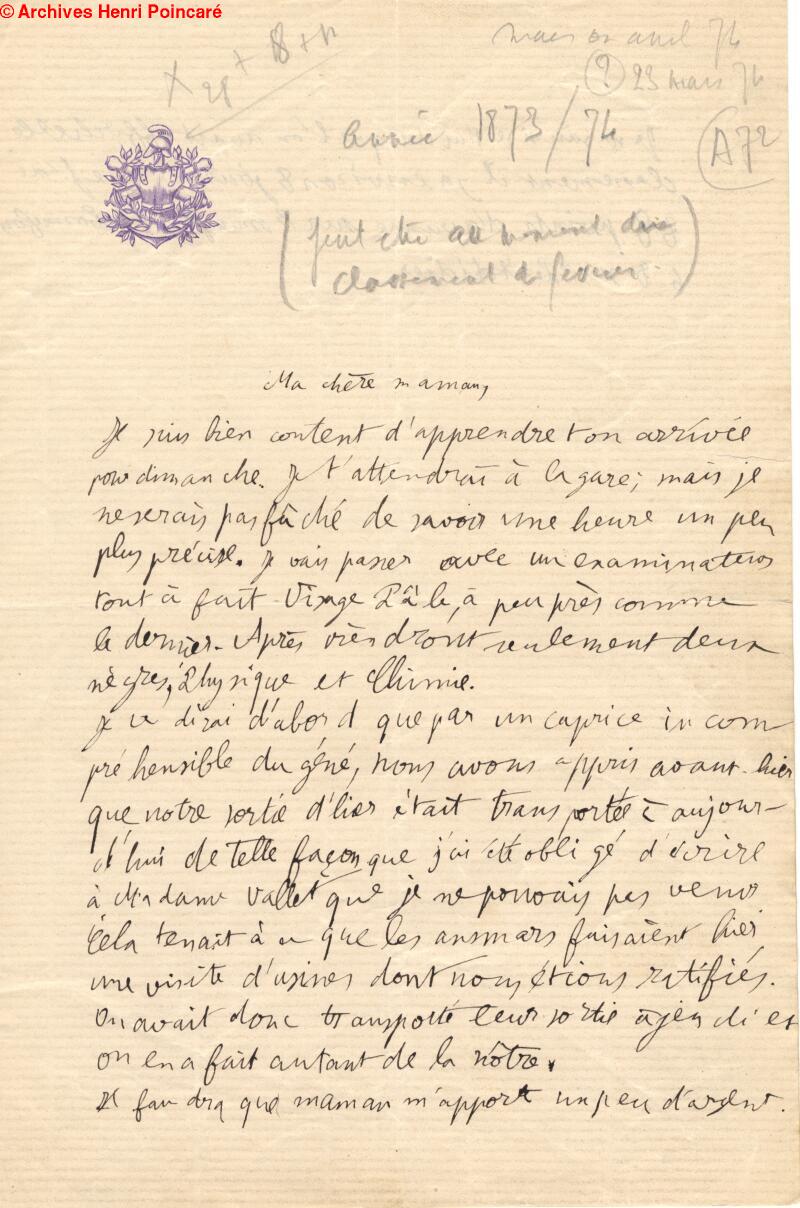 © Archives Henri Poincaré
mars ou avril 74
(?) 23 mars 74
X 28 + 8 + n
Année 1873/74
A72
(peut être au moment du
classement de février)
Ma chère maman,
Je suis bien content d'apprendre ton arrivée
pour dimanche. Je t'attendrai à la gare; mais je
ne serais pas fâché de savoir une heure un peu
plus précise. Je vais passer avec un examinateur
tout à fait Visage Pâle, à peu près comme
le dernier. Après viendront seulement deux
nègres, Physique et Chimie.
Je te dirai d'abord que par un caprice incom
préhensible du géné, nous avons appris avant-hier
que notre sortie d'hier était transportée à aujour-
d'hui de telle façon que j'ai été obligé d'écrire
à Madame Vallet que je ne pouvais pas venir
Cela tenait à ce que les ansmars faisaient hier
une visite d'usines dont nous étions ratifiés.
On avait donc transporté leur sortie à jeudi et
on en a fait autant de la nôtre.
Il faudra que maman m'apporte un peu d'argent.